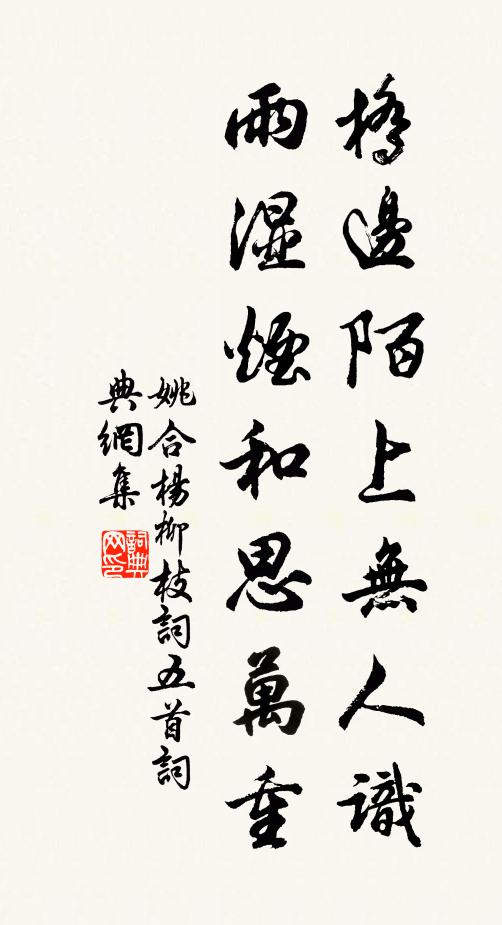 橋邊陌上無人識
雨濕煙和思萬重
姚合楊柳枝詞五首詞
典網集
詞典
网印